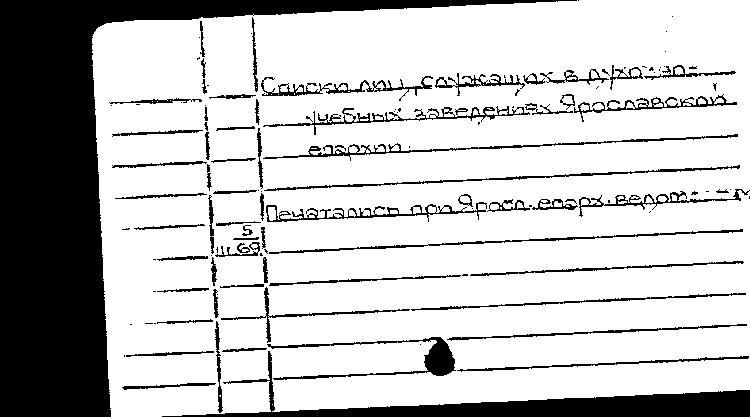 Списки лиц, служащих в духовно-
учебных заведениях Ярославской
епархии.
Печатались при Яросл. епарх. ведом.
5
III.69